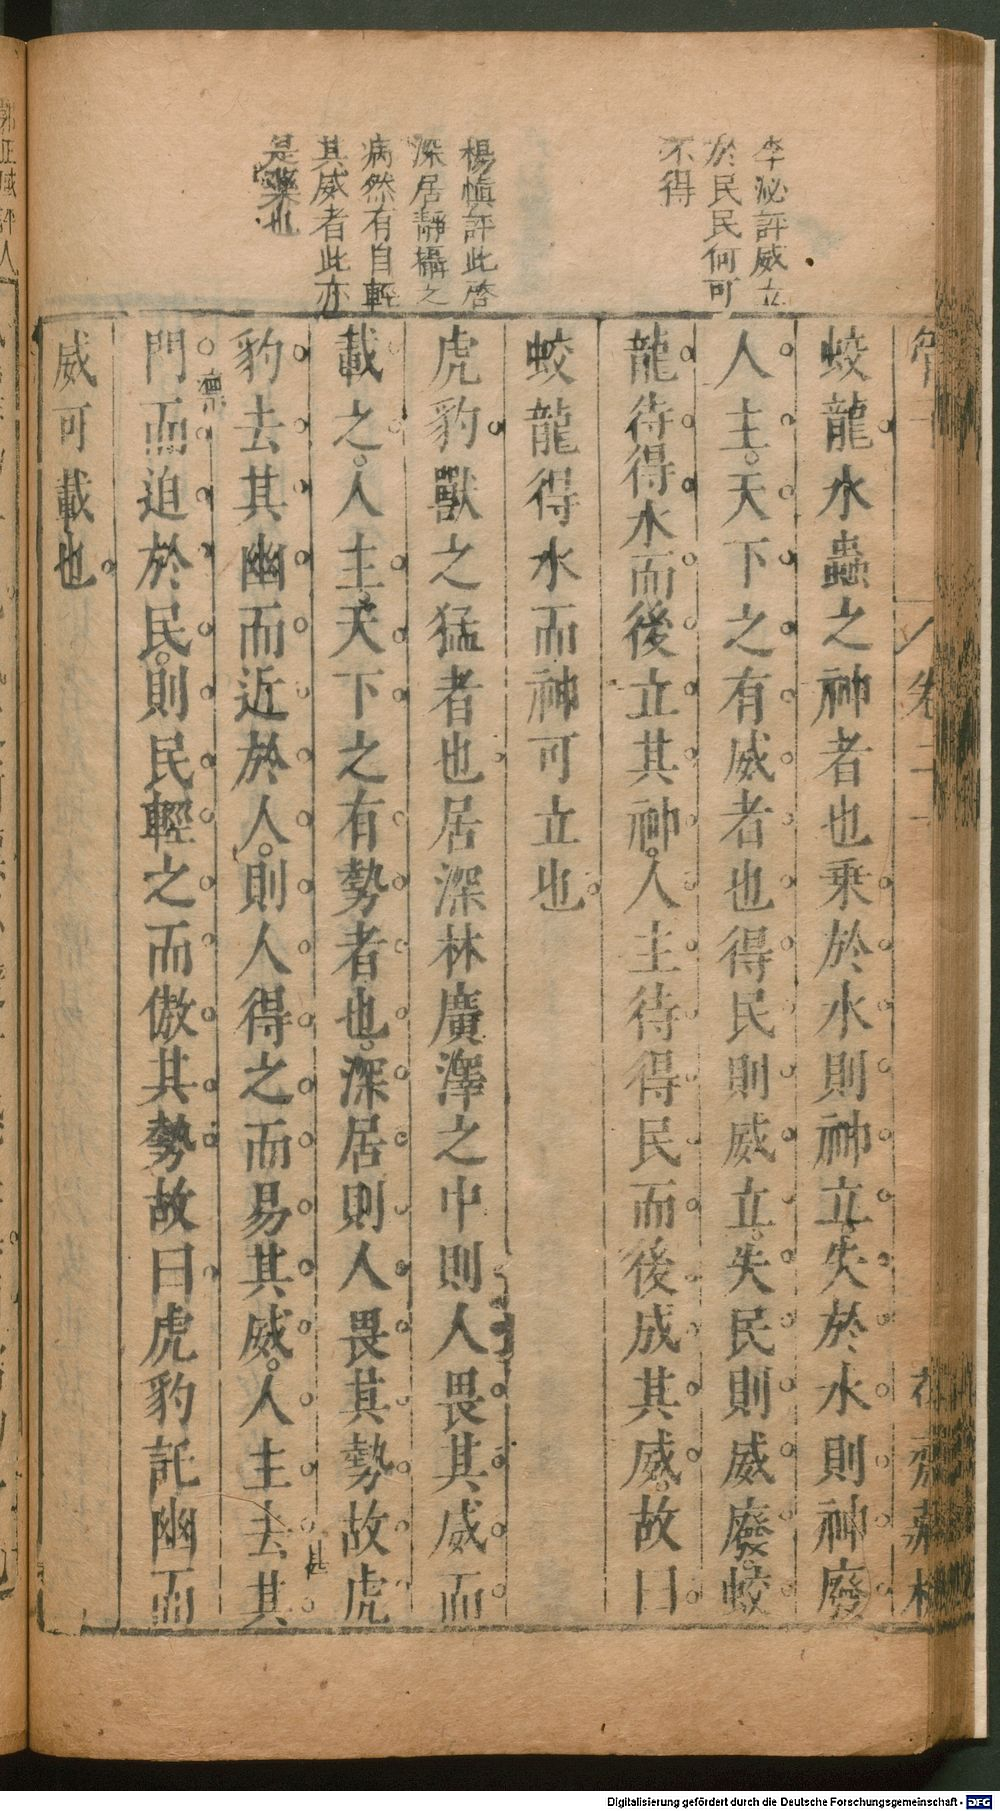 李泌評威立
於民民何可
不得
楊愼評此啓
深居靜攝之
病然有自輕
其威者此亦
是藥也
蛟龍水蟲之神者也乘於水則神立失於水則神廢
人主天下之有威者也得民則威立失民則威廢蛟
龍待得水而後立其神人主待得民而後成其威故曰
蛟龍得水而神可立也
虎豹獸之猛者也居深林廣澤之中則人畏其威而
載之人主天下之有勢者也深居則人畏其勢故虎
豹去其幽而近於人則人得之而易其威人主去其
門而迫於民則民輕之而傲其勢故曰虎豹託幽而
威可載也
Digitalisierung gefördert durch die Deutsche Forschungsgemeinschaft - DFG